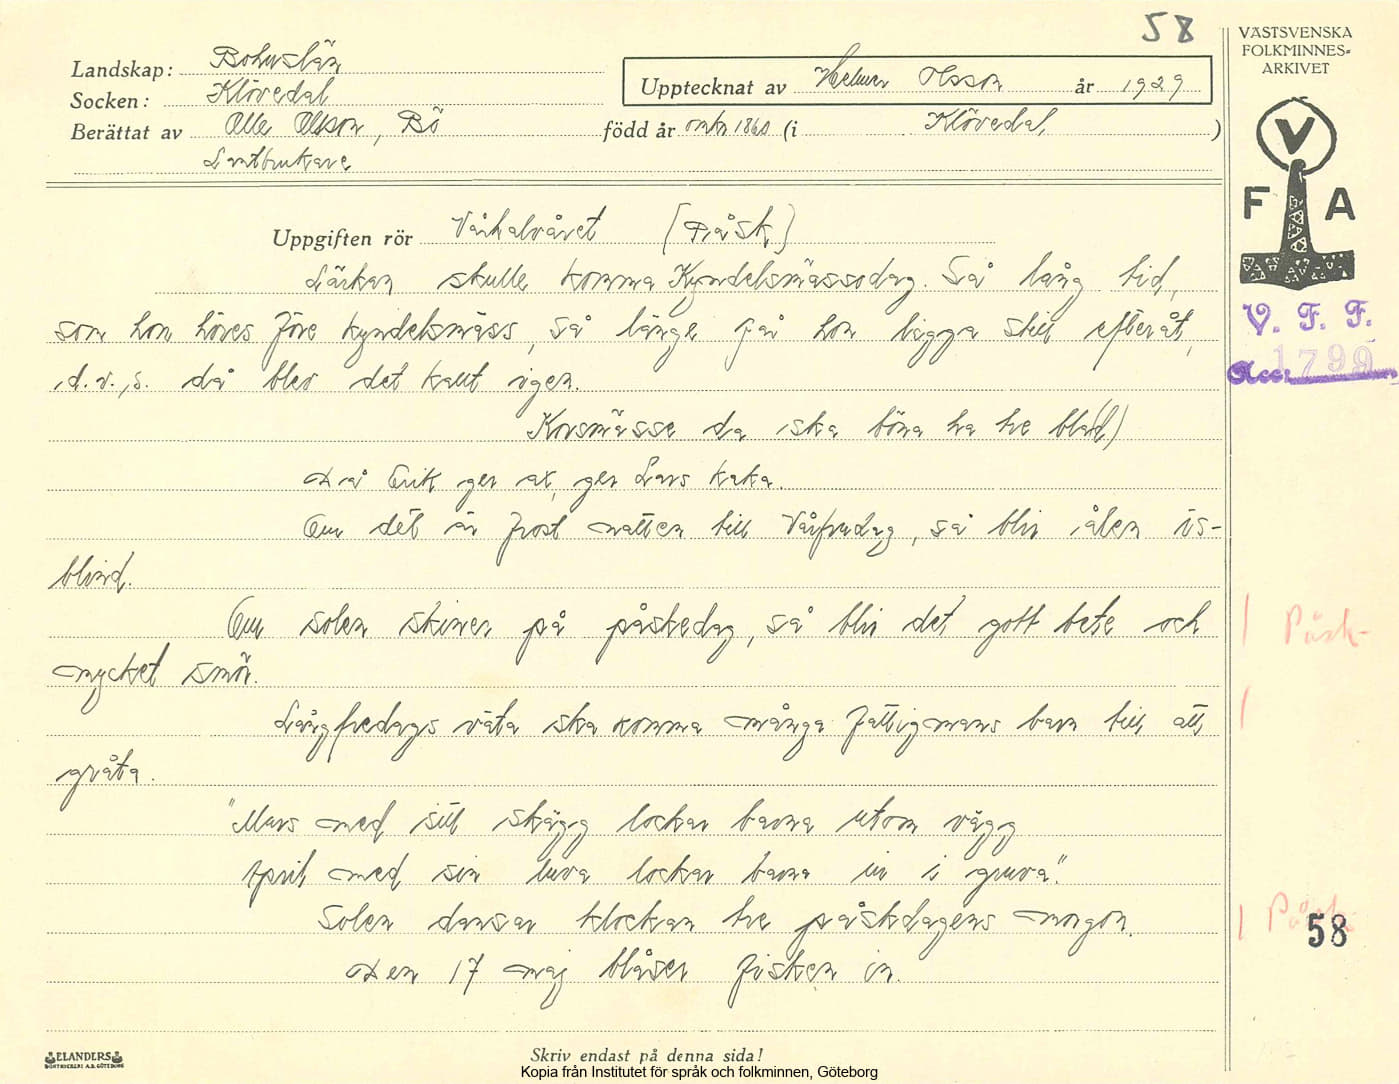 58
VÄSTSVENSKA
FOLKMINNES-
ARKIVET
Landskap: Bohuslän
Socken: Klövedal
Upptecknat av Helmer Olsson år 1929
Berättat av Olle Olsson, Bö född år omkr 1860 (i Klövedal)
Lantbrukare
V
F A
Uppgiften rör Vårhalvåret (Påsk)
Lärkan skulle komma Kyndelsmässodag. Så lång tid,
som hon höres före kyndelsmäss, så länge får hon ligga still efteråt,
d.v.s. då blev det kallt igen.
V. F. F.
Acc. 1799
Korsmässe da ska böna ha tre bla(d)
Då Erik ger ax, ger Lars kaka.
Om det är frost natten till Vårfrudag, så blir ålen is-
blind.
Om solen skiner på påskedag, så blir det gott bete och
mycket smör.
Påsk-
Långfredags väta ska komma många fattigmans barn till att
gråta.
"Mars med sitt skägg lockar barna utom vägg
April med sin luva lockar barna in i gruva."
Solen dansar klockan tre påskdagens morgon.
Påsk-
58
Den 17 maj blåser fisken in.
ELANDERS
BOKTRYCKERI A.B. GÖTEBORG
Skriv endast på denna sida!
Kopia från Institutet för språk och folkminnen, Göteborg